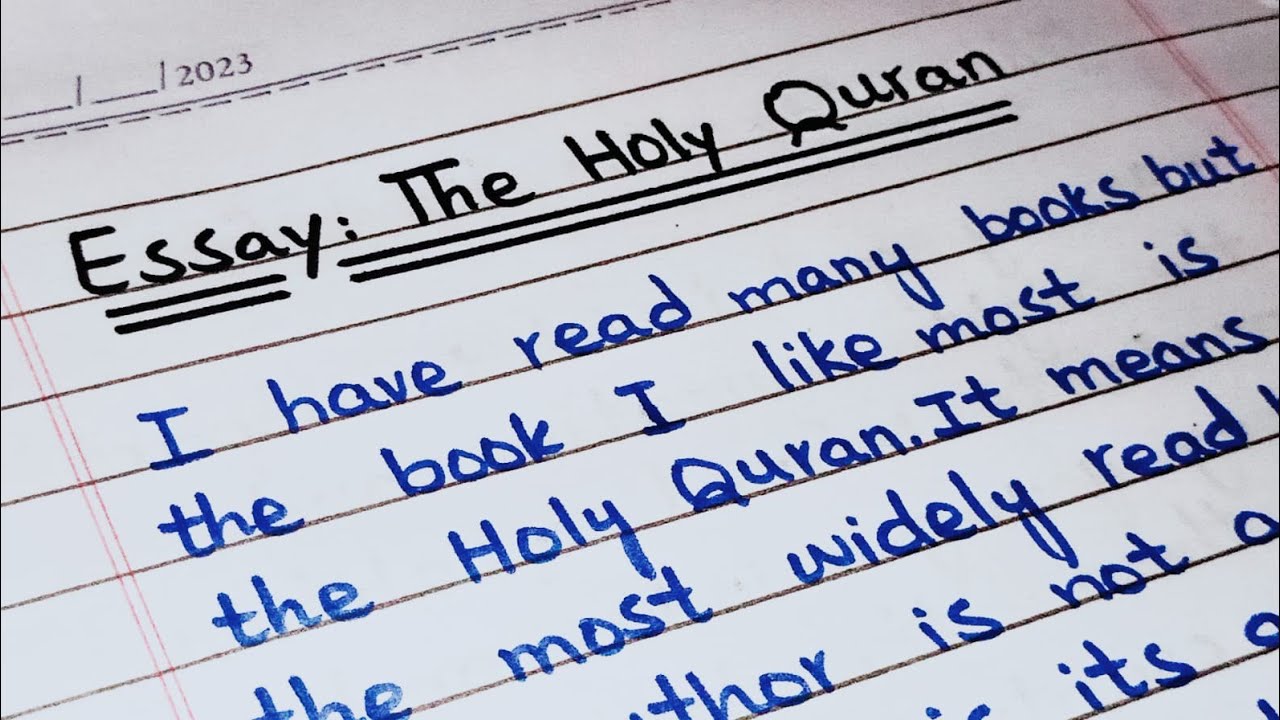 ___|___|2023
Essay: The Holy Quran
I have read many books but
the book I like most is
the Holy Quran. It means
the most widely read
the is not
is its